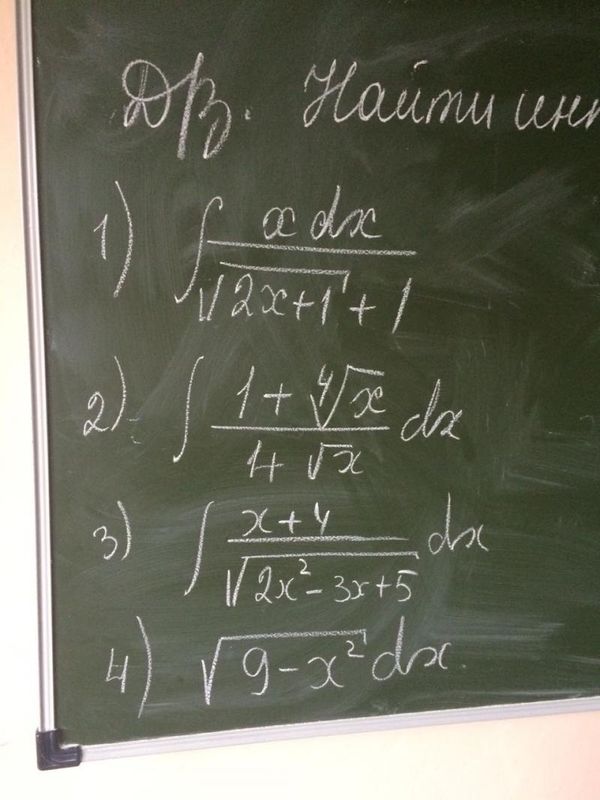 ДЗ. Найти инт
1) ∫ x dx / √(2x+1) + 1
2) ∫ (1 + ∜x) / (1 + √x) dx
3) ∫ (x + 4) / √(2x² - 3x + 5) dx
4) √(9 - x²) dx